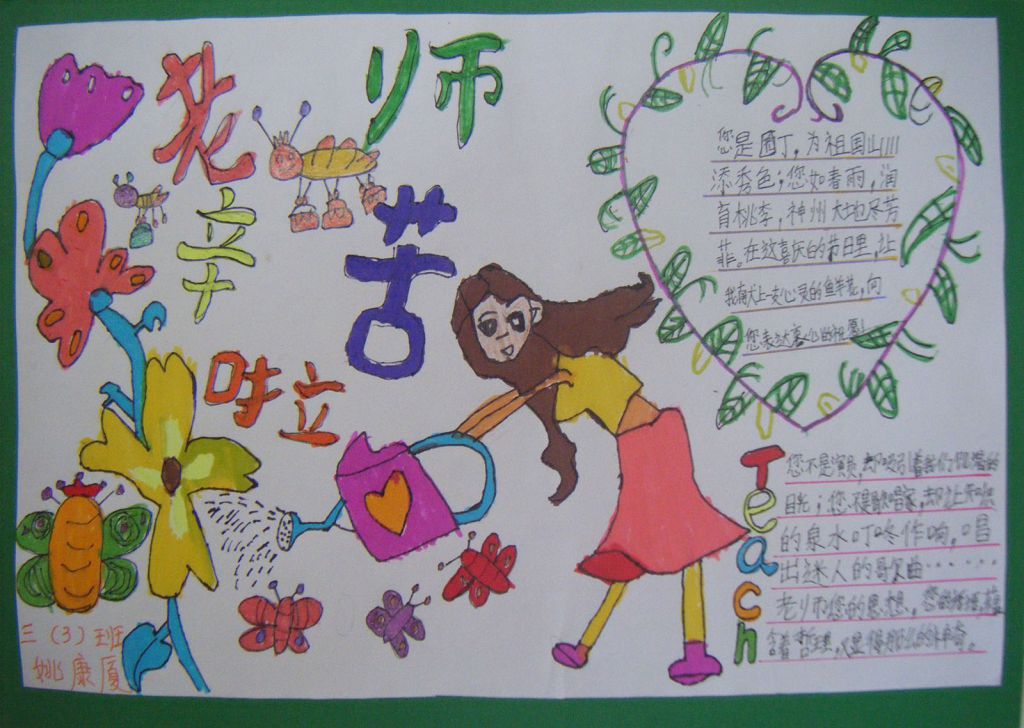 老师
辛苦
啦
您是园丁，为祖国山川
添秀色；您如春雨，润
育桃李，神州大地尽芳
菲。在这喜庆的节日里，让
我献上一支心灵的鲜花，向
您表达衷心的祝愿！
Teach
您不是演员，却吸引着我们的
目光；您不是歌唱家，却让
的泉水叮咚作响，唱
出迷人的歌曲……
老师您的思想，您的话语，
含着哲理，又显得那么的神奇。
三（3）班
姚康厦